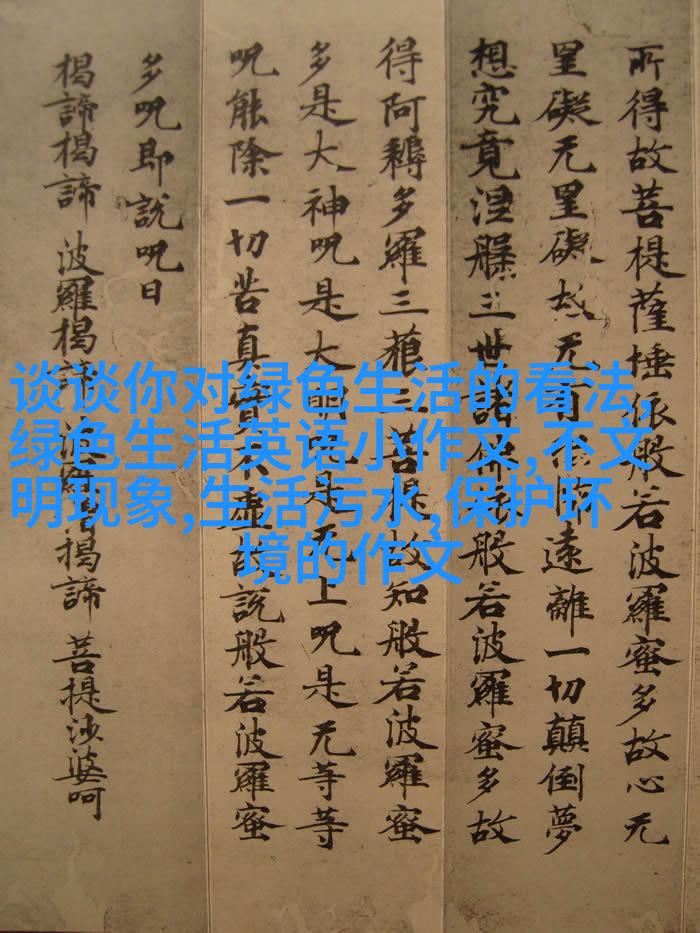 所得故菩提薩埵依般若波羅蜜多故心无
罣礙无罣礙故无有恐怖遠離一切顛倒夢
想究竟涅槃三世諸佛依般若波羅蜜多故
得阿耨多羅三藐三菩提故知般若波羅蜜
多是大神呪是大明呪是无上呪是无等等
呪能除一切苦真實不虛故說般若波羅蜜
多呪即說呪曰
揭諦揭諦 波羅揭諦 波羅僧揭諦 菩提沙婆呵
谈谈你对绿色生活的看法,
绿色生活英语小作文,不文
明现象,生活污水,保护环
境的作文